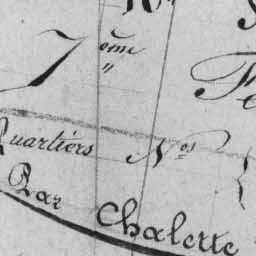 7ème "
Quartiers Nos
Bar Chalette